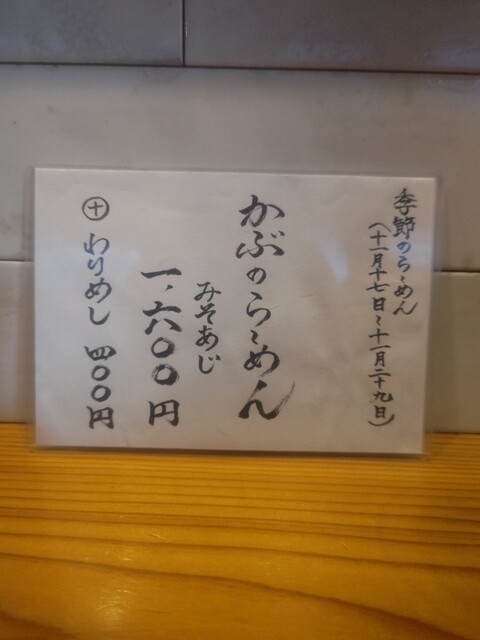 季節のらーめん
(十一月十七日〜十一月二十九日)
かぶのらーめん
みそあじ
一、六〇〇円
㊉ わりめし 四〇〇円